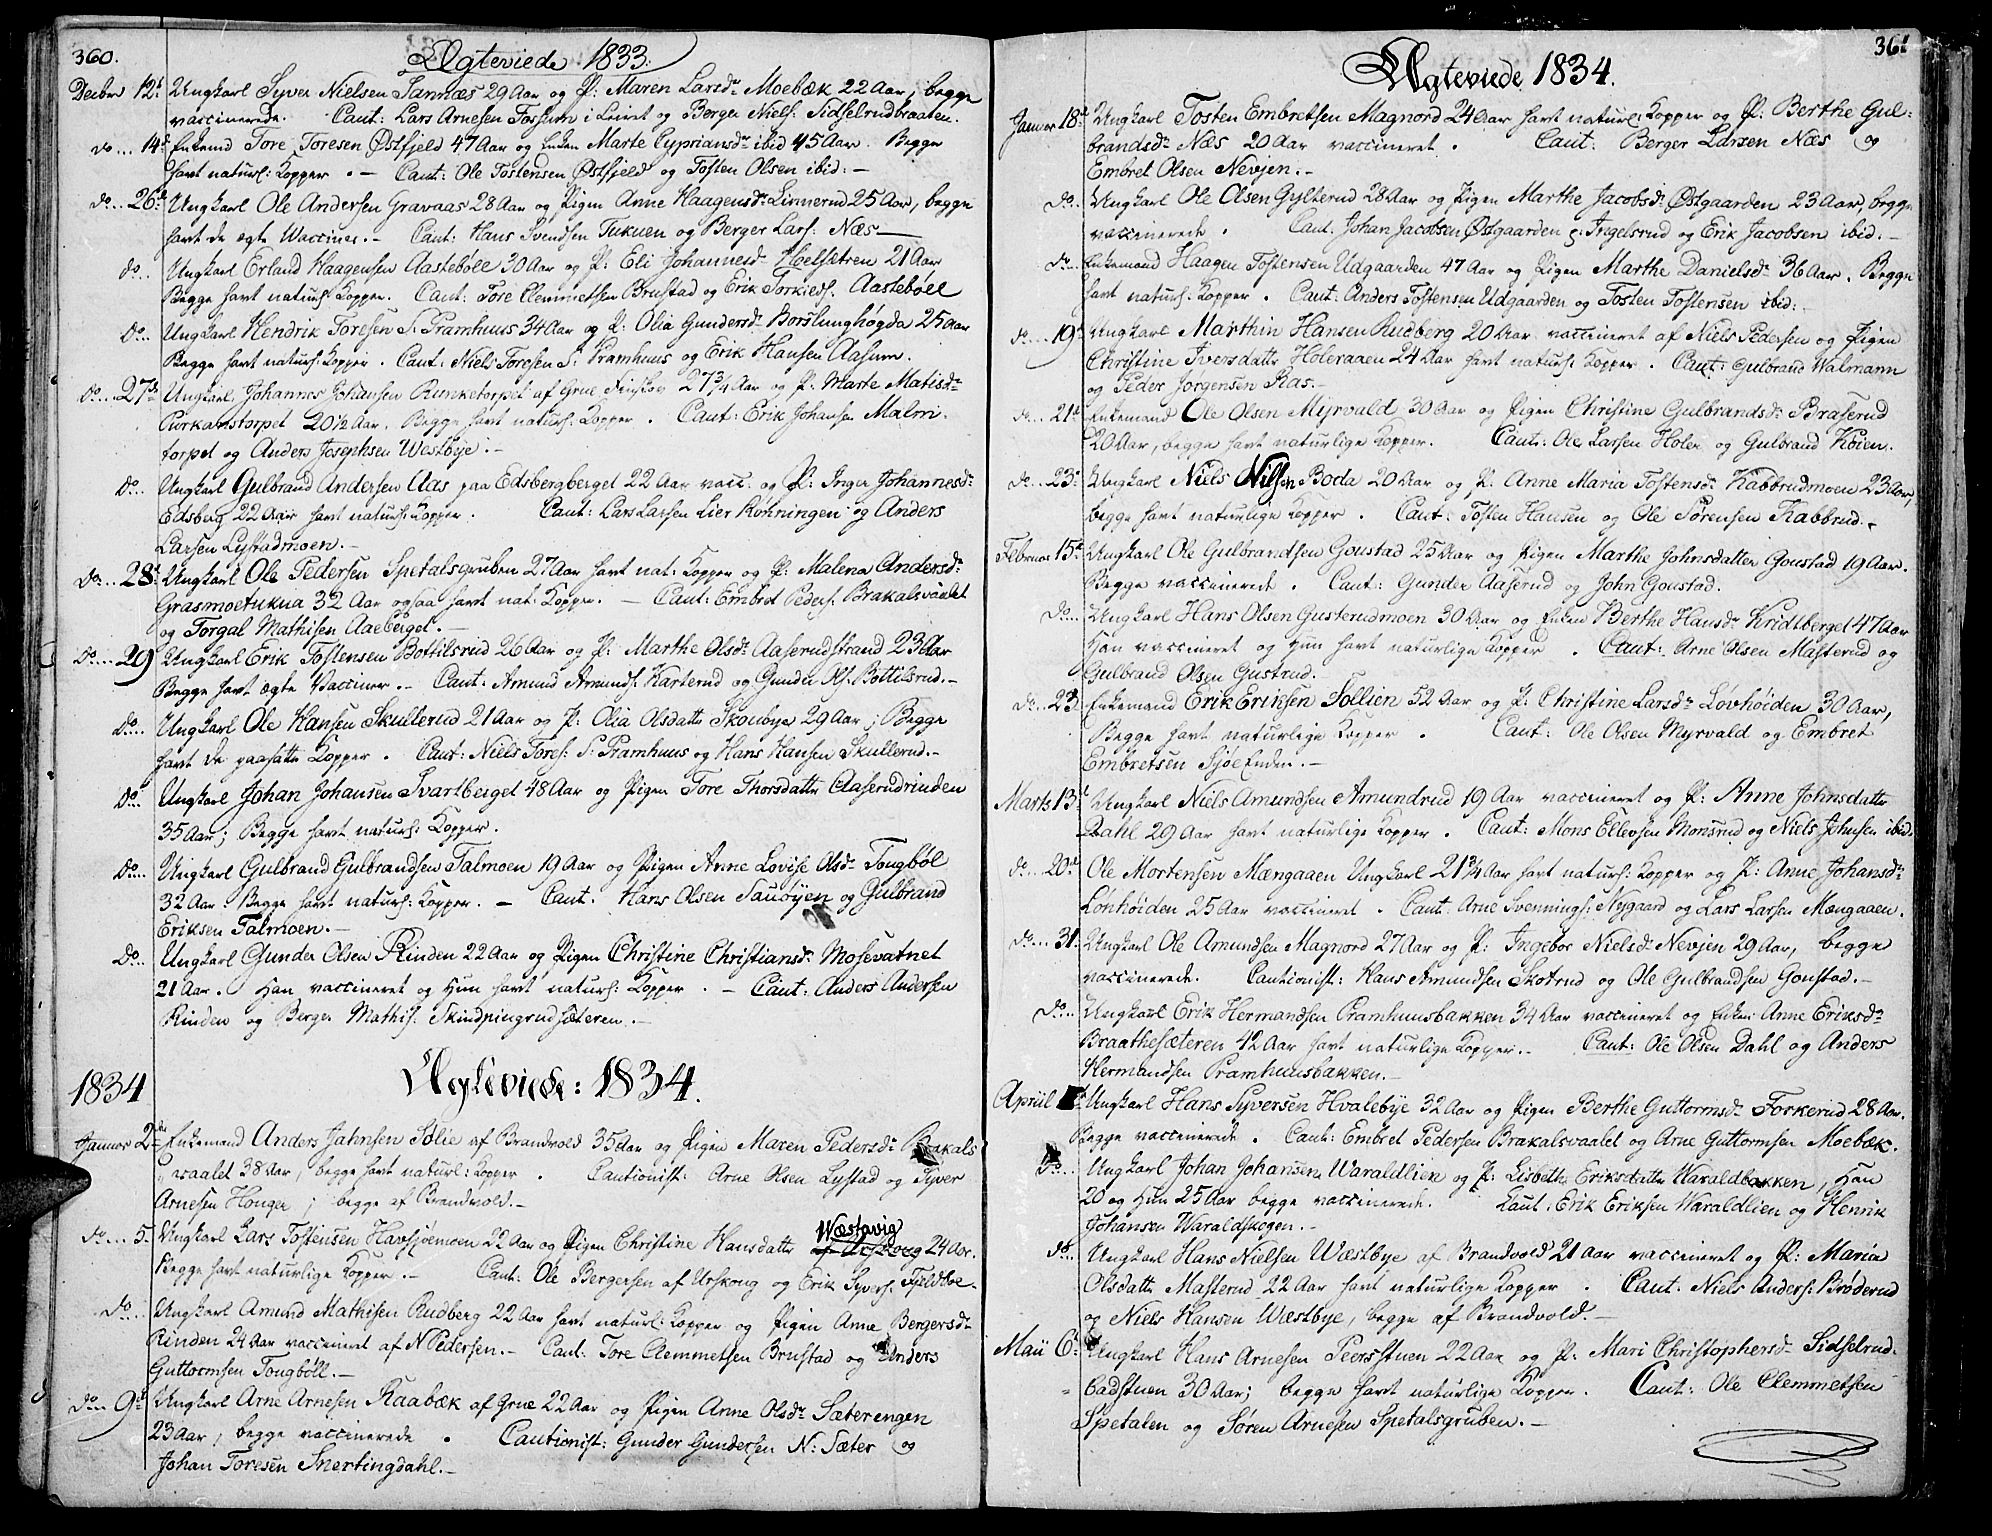 360.
Ægteviede 1833.
Decbr 12t Ungkarl Syver Nielsen Sannæs 29 Aar og P: Maren Larsdr Moebæk 22 Aar, begge
vaccinerede. Caut: Lars Arnesen Fossum i Leiret og Berger Niels: Sidselrudbraaten.
do... 14d Enkemd Tore Toresen Østfjeld 47 Aar og Enken Marte Cypriansdr ibid 45 Aar. Begge
havt naturl: Kopper. — Caut: Ole Tostensen Østfjeld og Tosten Olsen ibid: —
do... 26d Ungkarl Ole Andersen Gravaas 28 Aar og Pigen Anne Haagensdr Linnerud 25 Aar, begge
havt de ægte Vacciner. — Caut: Hans Svendsen Tukuen og Berger Lars: Næs —
do... Ungkarl Erland Haagensen Aastebøle 30 Aar og P: Eli Johannesd: Hoelsætren 21 Aar
Begge havt naturl: Kopper. Caut: Tore Clemmetsen Brustad og Erik Torkieds: Aastebøll
do... Ungkarl Hendrik Toresen S: Pramhuus 34 Aar og P: Olia Gundersdr Borslunghøgda 25 Aar
Begge havt naturl: Kopper. Caut: Niels Toresen S: Pramhuus og Erik Hansen Aasum.
do... 27de Ungkarl Johannes Johansen Runketorpet af Grue Finskov 27¾ Aar og P: Marte Matisdr
Purkanstorpet 20½ Aar. Begge havt naturl: Kopper. Caut: Erik Johansen Malm:
torpet og Anders Josephsen Westbye. —
do... Ungkarl Gulbrand Andersen Aas paa Edsbergberget 22 Aar vacc. og P: Inger Johannesdr
Edsberg 22 Aar havt naturl: Kopper. Caut: Lars Larsen Lier Kønningen og Anders
Larsen Lystadmoen. —
do... 28d Ungkarl Ole Pedersen Spetalsgruben 27 Aar havt nat: Kopper og P: Malene Andersdr
Grasmoetukua 32 Aar ogsaa havt nat: Kopper. — Caut: Embret Peders: Brakalsvaalet
og Torgal Mathisen Aaeberget. —
do... 29 Ungkarl Erik Tostensen Bottilsrud 26 Aar og P: Marthe Olsdr Aaserudstrand 23 Aar
Begge havt ægte Vacciner. — Caut: Amund Amunds: Karterud og Gunder Ols: Bottilsrud. —
do... Ungkarl Ole Hansen Skullerud 21 Aar og P: Olia Olsdatter Skoubye 29 Aar; Begge
havt de paasatte Kopper. Caut: Niels Tores: S: Pramhuus og Hans Hansen Skullerud. —
do... Ungkarl Johan Johansen Svartberget 48 Aar og Pigen Tore Thorsdatter Aaserudrinden
35 Aar; Begge havt naturl: Kopper.
do... Ungkarl Gulbrand Gulbrandsen Talmoen 19 Aar og Pigen Anne Lovise Olsdr Tongbøl
32 Aar. Begge havt naturl: Kopper. — Caut. Hans Olsen Sauøyen og Gulbrand
Eriksen Talmoen. —
do... Ungkarl Gunder Olsen Rinden 22 Aar og Pigen Christine Christiansd: Mosevatnet
21 Aar. Han vaccineret og Hun havt naturl: Kopper. — Caut: Anders Andersen
Rinden og Berger Mathis: Skindpingrudsæteren. —
1834 Ægteviede: 1834.
Januar 2den Enkemand Anders Jahnsen Solie af Brandvold 35 Aar og Pigen Maren Pedersdr Brakals
vaalet 38 Aar, begge havt naturl: Kopper. Cautionist: Arne Olsen Lystad og Syver
Arnesen Honger; begge af Brandvold. —
do... 5. Ungkarl Lars Tostensen Havsjøemoen 22 Aar og Pigen Christine Hansdatter Wæstavig 24 Aar.
Begge havt naturlige Kopper. — Caut: Ole Bergersen af Urskoug og Erik Syvers: Fjeldbe —
do... Ungkarl Amund Mathisen Rudberg 22 Aar havt naturl: Kopper og Pigen Anne Bergersdr
Rinden 24 Aar vaccineret af N Pedersen. — Caut: Tore Clemmetsen Brustad og Anders
Guttormsen Tongbøll. —
do... 9d Ungkarl Arne Arnesen Kaabæk af Grue 22 Aar og Pigen Anne Olsdr Sæterengen
23 Aar, begge vaccinerede. Cautionist: Gunder Gundersen N: Sæter og
Johan Toresen Snertingdahl. —
361
Ægteviede 1834.
Januar 18d Ungkarl Tosten Embretsen Magnord 24 Aar havt naturl: Kopper og P: Berthe Gul:
brandsdr Næs 20 Aar vaccineret. Caut: Berger Larsen Næs og
Embret Olsen Nevjen. —
do.. Ungkarl Ole Olsen Gylterud 28 Aar og Pigen Marthe Jacobsd: Østgaarden 23 Aar, begge
vaccinerede. Caut. Johan Jacobsen Østgaarden i Ingelsrud og Erik Jacobsen ibid. —
do... Enkemand Haagen Tostensen Udgaarden 47 Aar og Pigen Marthe Danielsdr 36 Aar. Begge
havt naturl: Kopper. Caut: Anders Tostensen Udgaarden og Tosten Tostensen ibid: —
do.... 19d Ungkarl Marthin Hansen Rudberg 20 Aar vaccineret af Niels Pedersen og Pigen
Christine Iversdatter Holeraaen 24 Aar havt naturl: Kopper. Caut: Gulbrand Walmann
og Peder Jørgensen Ras. —
do... 21d Enkemand Ole Olsen Myrvald 30 Aar og Pigen Christine Gulbrandsd: Braserud
20 Aar, begge havt naturlige Kopper. Caut: Ole Larsen Holen og Gulbrand Koien.
do... 23. Ungkarl Niels Nilsen Boda 20 Aar og P. Anne Maria Tostensdr Kabbrudmoen 23 Aar,
begge havt naturlige Kopper. Caut: Tosten Hansen og Ole Sørensen Kabbrud. —
Februar 15d Ungkarl Ole Gulbrandsen Goustad 25 Aar og Pigen Marthe Johnsdatter Goustad 19 Aar.
Begge vaccinerede. Caut: Gunder Aaserud og John Goustad.
do.... Ungkarl Hans Olsen Gusterudmoen 30 Aar og Enken Berthe Hansdr Kridtberget 47 Aar
Han vaccineret og Hun havt naturlige Kopper. Caut: Arne Olsen Masterud og
Gulbrand Olsen Gustrud.
do... 23. Enkemand Erik Eriksen Tollien 52 Aar og P. Christine Larsdr Løvhøiden 30 Aar,
Begge havt naturlige Kopper. Caut: Ole Olsen Myrvald og Embret
Embretsen Sjøe Enden. —
Marts 13d Ungkarl Niels Amundsen Amundrud 19 Aar vaccineret og P: Anne Johnsdatter
Dahl 29 Aar havt naturlige Kopper. Caut: Mons Ellevsen Monsrud og Niels Johnsen ibid.
do... 20d Ole Mortensen Mængaaen Ungkarl 21¾ Aar havt naturl: Kopper og P: Anne Johansdr
Lønhøiden 25 Aar vaccineret. Caut: Arne Svennings: Nygaard og Lars Larsen Mængaaen.
do... 31. Ungkarl Ole Amundsen Magnord 27 Aar og P: Ingebor Nielsdr Nevjen 29 Aar, begge
vaccinerede. Cautionist: Hans Amundsen Skotrud og Ole Gulbrandsen Goustad. —
do... Ungkarl Erik Hermandsen Pramhuusbakken 34 Aar vaccineret og Enken Anne Eriksdr
Braathesæteren 42 Aar havt naturlige Kopper. — Caut: Ole Olsen Dahl og Anders
Hermandsen Pramhuusbakken. —
Apriil Ungkarl Hans Syversen Hvalebye 32 Aar og Pigen Berthe Guttormsd: Torkerud 28 Aar.
Begge vaccinerede. Caut: Embret Pedersen Brakalsvaalet og Arne Guttormsen Moebæk.
do... Ungkarl Johan Johansen Waraldlien og P: Lisbeth Eriksdatter Waraldbakken, Han
20 og Hun 25 Aar begge vaccinerede. Caut: Erik Eriksen Waraldlien og Henrik
Johansen Waraldskogen. —
do... Ungkarl Hans Nielsen Wæstbye af Brandvold 21 Aar vaccineret og P: Maria
Olsdatter Masterud 22 Aar havt naturlige Kopper. Caut: Niels Anders: Brøderud
og Niels Hansen Wæstbye, begge af Brandvold. —
Maii 6t Ungkarl Hans Arnesen Peersstuen 22 Aar og P. Mari Christophersd: Sidselrud:
badstuen 30 Aar; begge havt naturlige Kopper. Caut: Ole Clemmetsen
Spetalen og Søren Arnesen Spetalsgruben. —